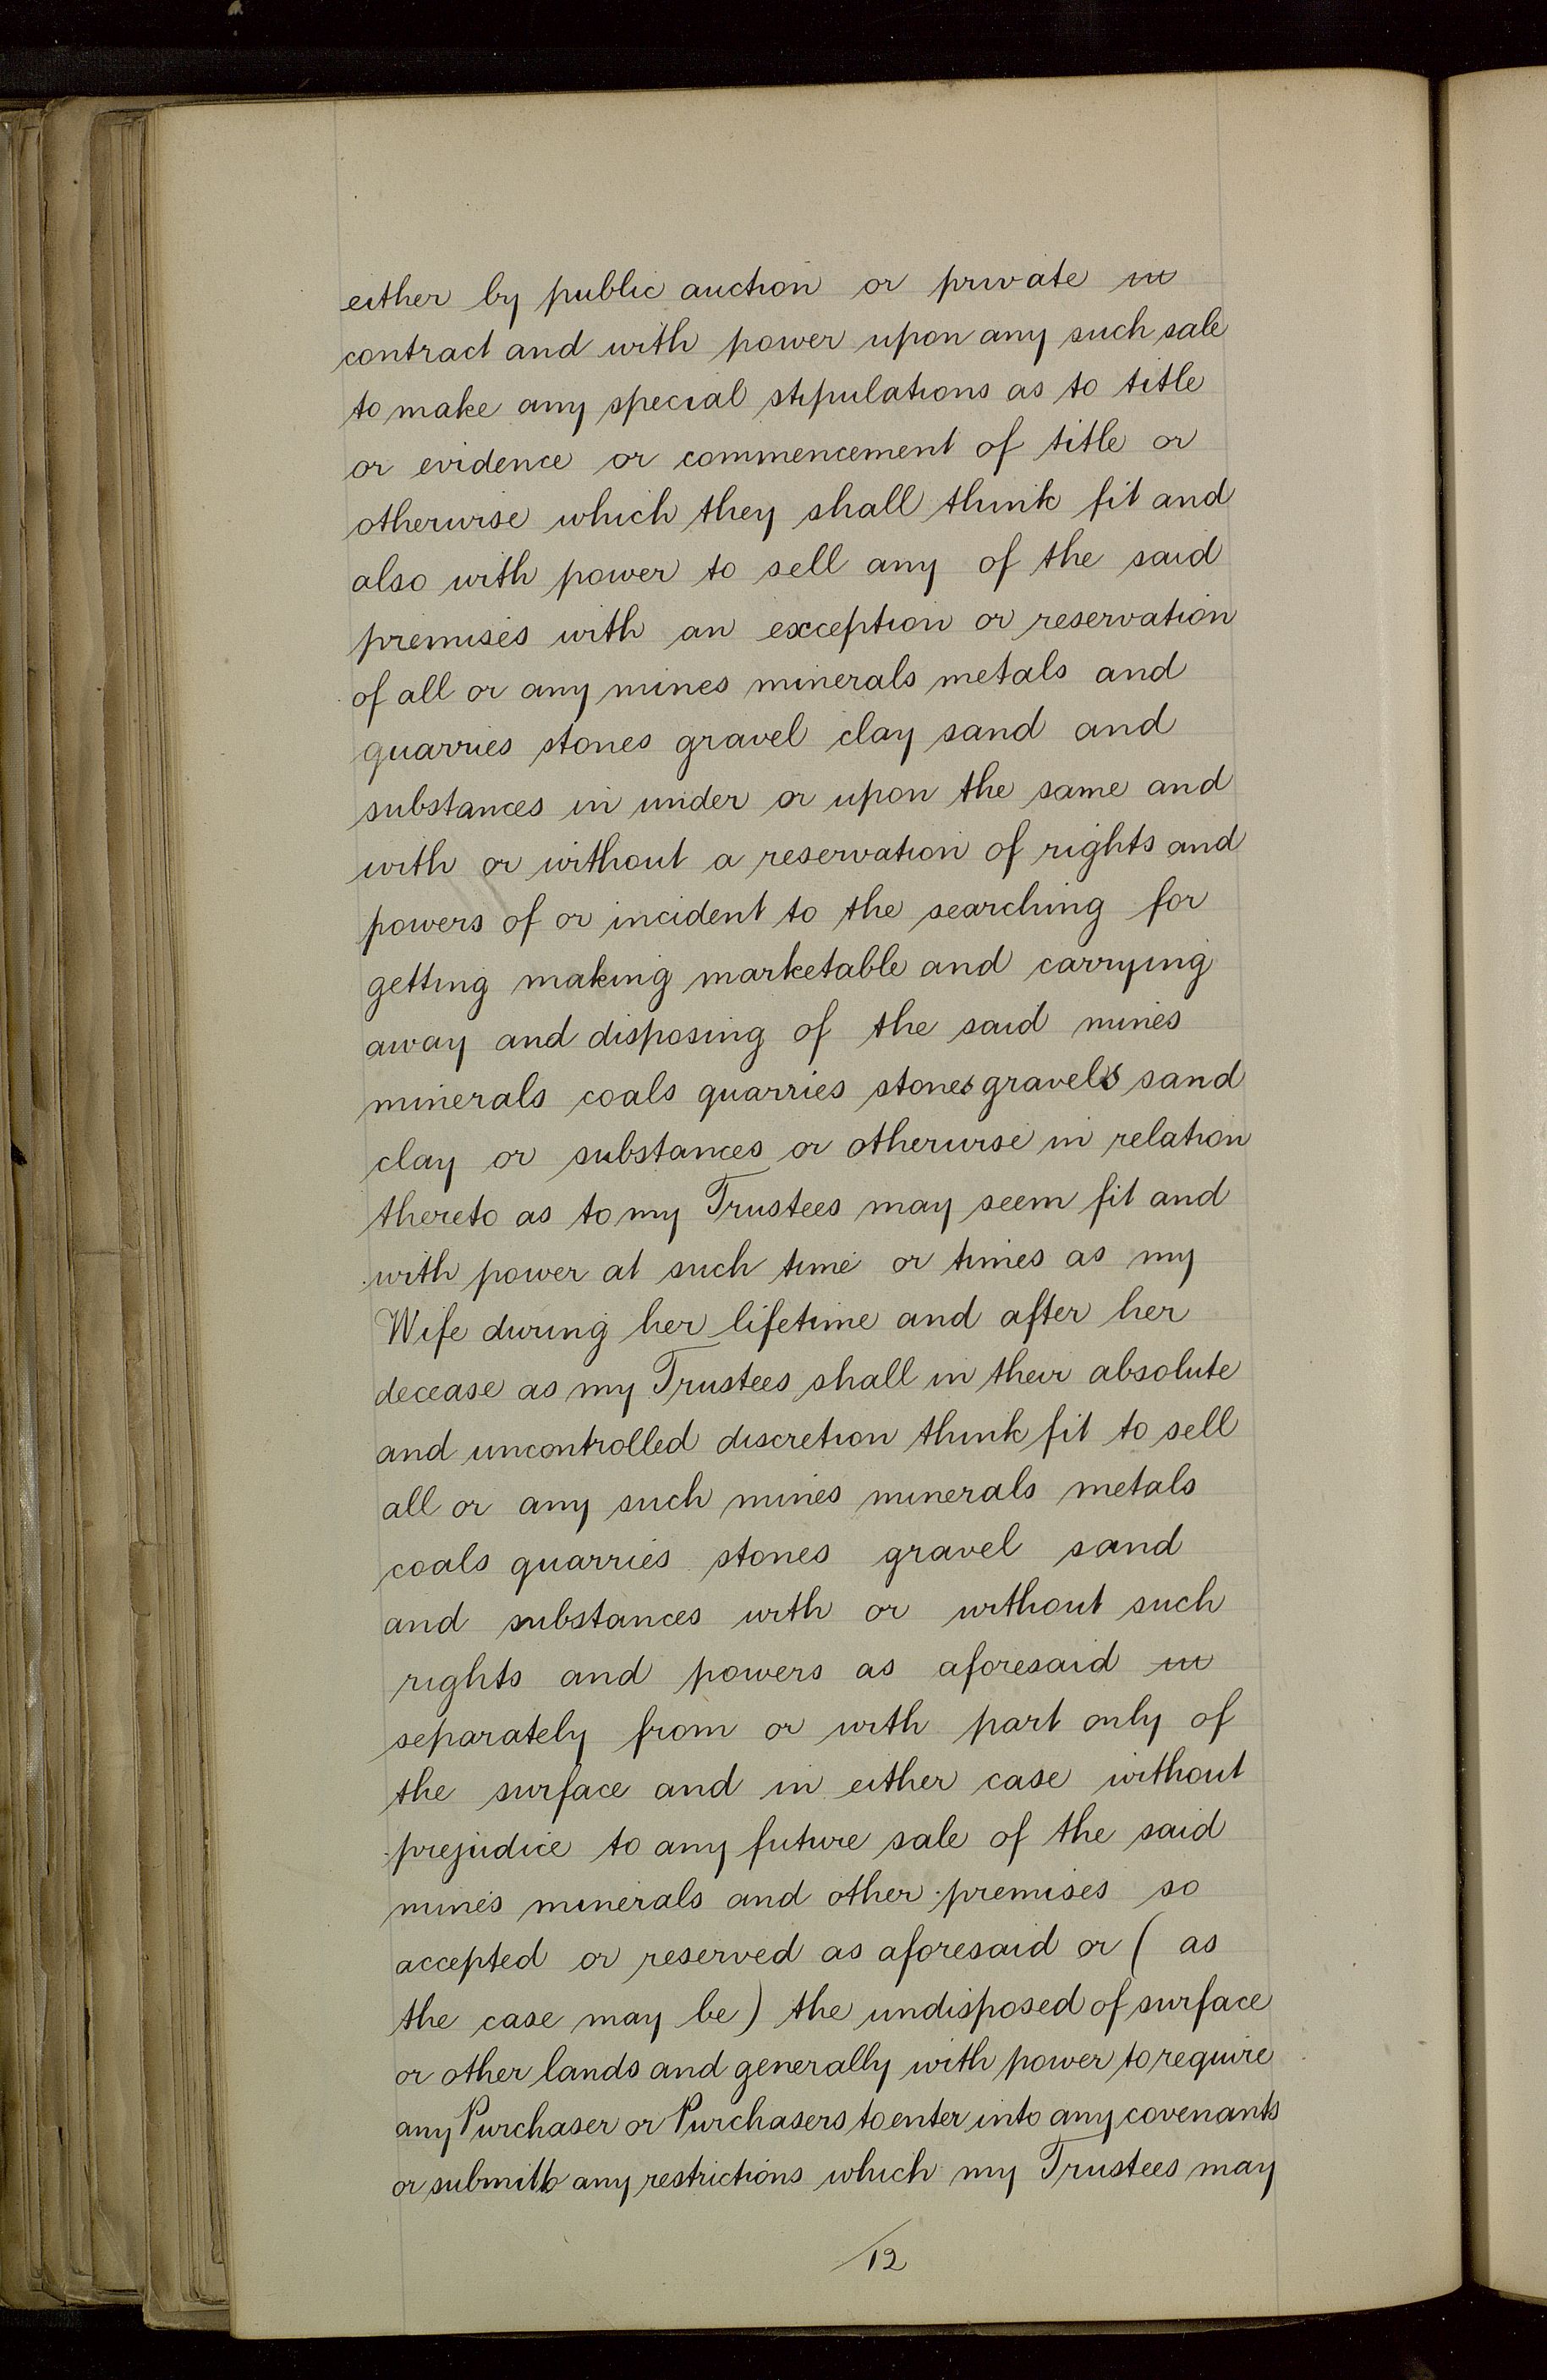 either by public auction or private in
contract and with power upon any such sale
to make any special stipulations as to title
or evidence or commencement of title or
otherwise which they shall think fit and
also with power to sell any of the said
premises with an exception or reservation
of all or any mines minerals metals and
quarries stones gravel clay sand and
substances in under or upon the same and
with or without a reservation of rights and
powers of or incident to the searching for
getting making marketable and carrying
away and disposing of the said mines
minerals coals quarries stones gravels sand
clay or substances or otherwise in relation
thereto as to my Trustees may seem fit and
with power at such time or times as my
Wife during her lifetime and after her
decease as my Trustees shall in their absolute
and uncontrolled discretion think fit to sell
all or any such mines minerals metals
coals quarries stones gravel sand
and substances with or without such
rights and powers as aforesaid in
separately from or with part only of
the surface and in either case without
prejudice to any future sale of the said
mines minerals and other premises so
accepted or reserved as aforesaid or ( as
the case may be ) the undisposed of surface
or other lands and generally with power to require
any Purchaser or Purchasers to enter into any covenants
or submit to any restrictions which my Trustees may
12